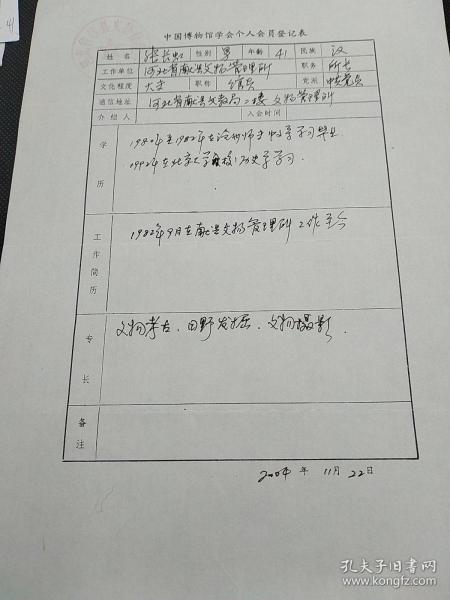 41
中国博物馆学会个人会员登记表
姓名 张长虹 性别 男 年龄 41 民族 汉
工作单位 河北省献县文物管理所 职务 所长
文化程度 大专 职称 馆员 党派 中共党员
通信地址 河北省献县文教局二楼文物管理所
介绍人 入会时间
学历
1980年至1982年在沧州师专中学习毕业
1992年在北京大学历史学学习
工作简历
1982年9月在献县文物管理所工作至今
专长
文物考古、田野发掘、文物摄影
备注
2004年11月22日
孔夫子旧书网
www.kongfz.com